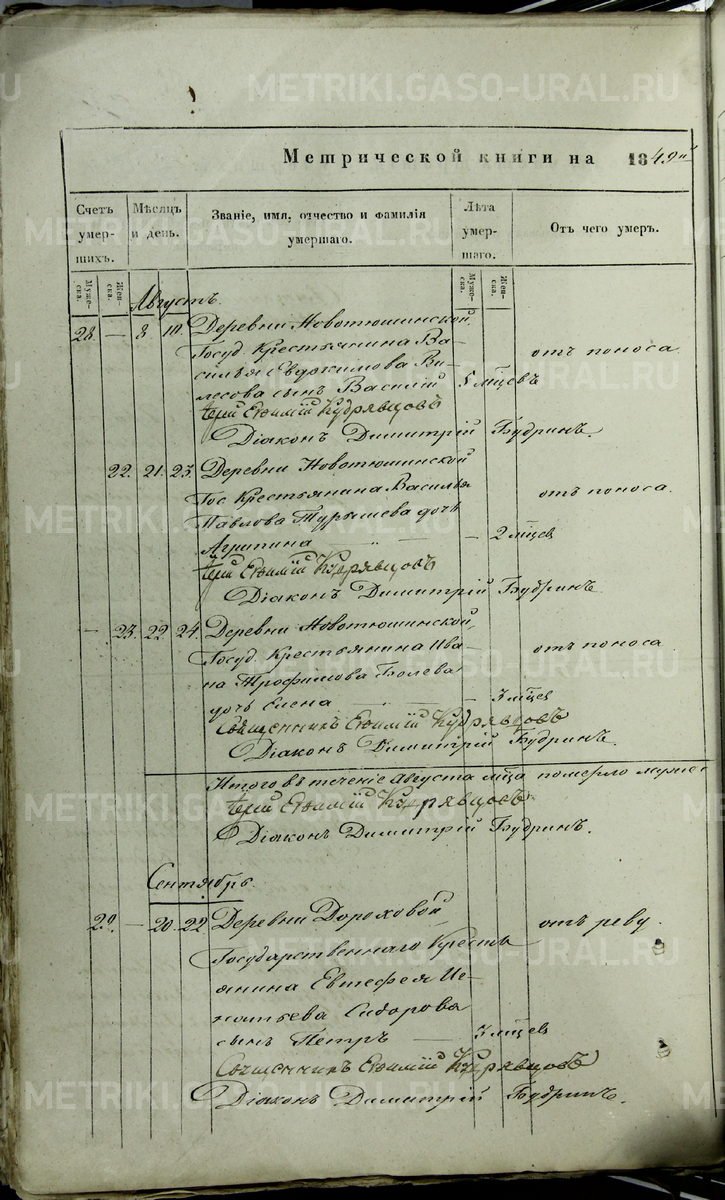 METRIKI.GASO-URAL.RU
Метрической книги на 1849й
Счетъ умер- шихъ.
Мѣсяцъ и день.
Званіе, имя, отчество и фамилія умершаго.
Лѣта умер- шаго.
Отъ чего умеръ.
Муже- ска.
Жен- ска.
Муже- ска.
Жен- ска.
Августъ.
28 — 8 10. Деревни Новотюшинской,
Госуд. Крестьянина Ва-
силья Евдокимова Ви- отъ поноса
лесова сынъ Василій 5 мцевъ
Іерей Евѳимій Кудрявцовъ
Діаконъ Димитрій Будринъ.
22. 21. 23. Деревни Новотюшинской
Гос Крестьянина Василья отъ поноса.
Павлова Турышева дочь
Агрипина — 2 мцев
Іерей Евѳимій Кудрявцовъ
Діаконъ Димитрій Будринъ
— 23. 22. 24. Деревни Новотюшинской,
Госуд. Крестьянина Ива- отъ поноса
на Трофимова Болева
дочь Елена — 3 мцев
Священникъ Евѳимій Кудрявцовъ
Діаконъ Димитрій Будринъ.
Итого въ теченіе Августа мца померло мужес
Іерей Евѳимій Кудрявцовъ
Діаконъ Димитрій Будринъ.
Сентябрь.
29. — 20. 22 Деревни Дороховой, отъ реву.
Государственнаго Кресть
янина Евтефея Иг-
натьева Сидорова
сынъ Петръ — 3 мцев
Священникъ Евѳимій Кудрявцовъ
Діаконъ Димитрій Будринъ.